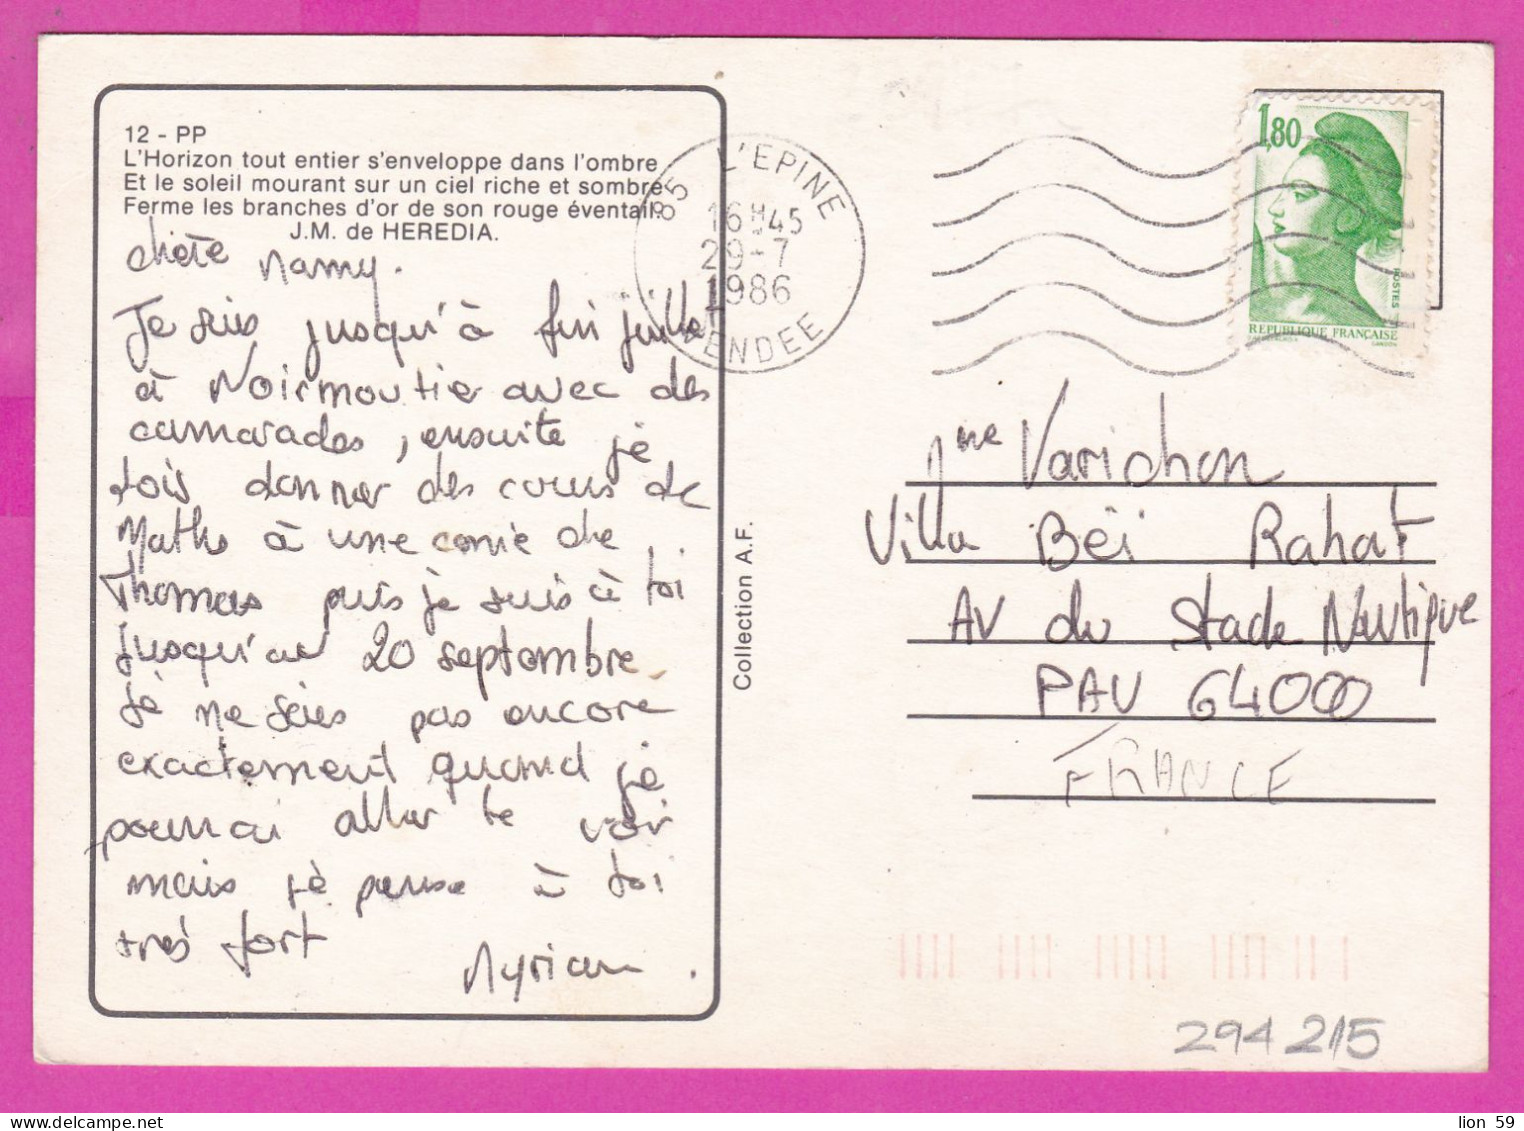 12 - PP
L'Horizon tout entier s'enveloppe dans l'ombre
Et le soleil mourant sur un ciel riche et sombre
Ferme les branches d'or de son rouge éventail.
J.M. de HEREDIA.
chère Mamy.
Je suis jusqu'à fin juillet
à Noirmoutier avec des
camarades, ensuite je
dois donner des cours de
Maths à une copine de
Thomas puis je suis à toi
jusqu'au 20 septembre
je ne sais pas encore
exactement quand je
pourrai aller te voir
mais je pense à toi
très fort
Myriam.
Collection A.F.
85 L'EPINE
16H45
29-7
1986
VENDEE
1,80
POSTES
REPUBLIQUE FRANÇAISE
GANDON
Mme Varichon
Villa Bëi Rahat
AV du Stade Nautique
PAU 64000
FRANCE
294215
lion 59